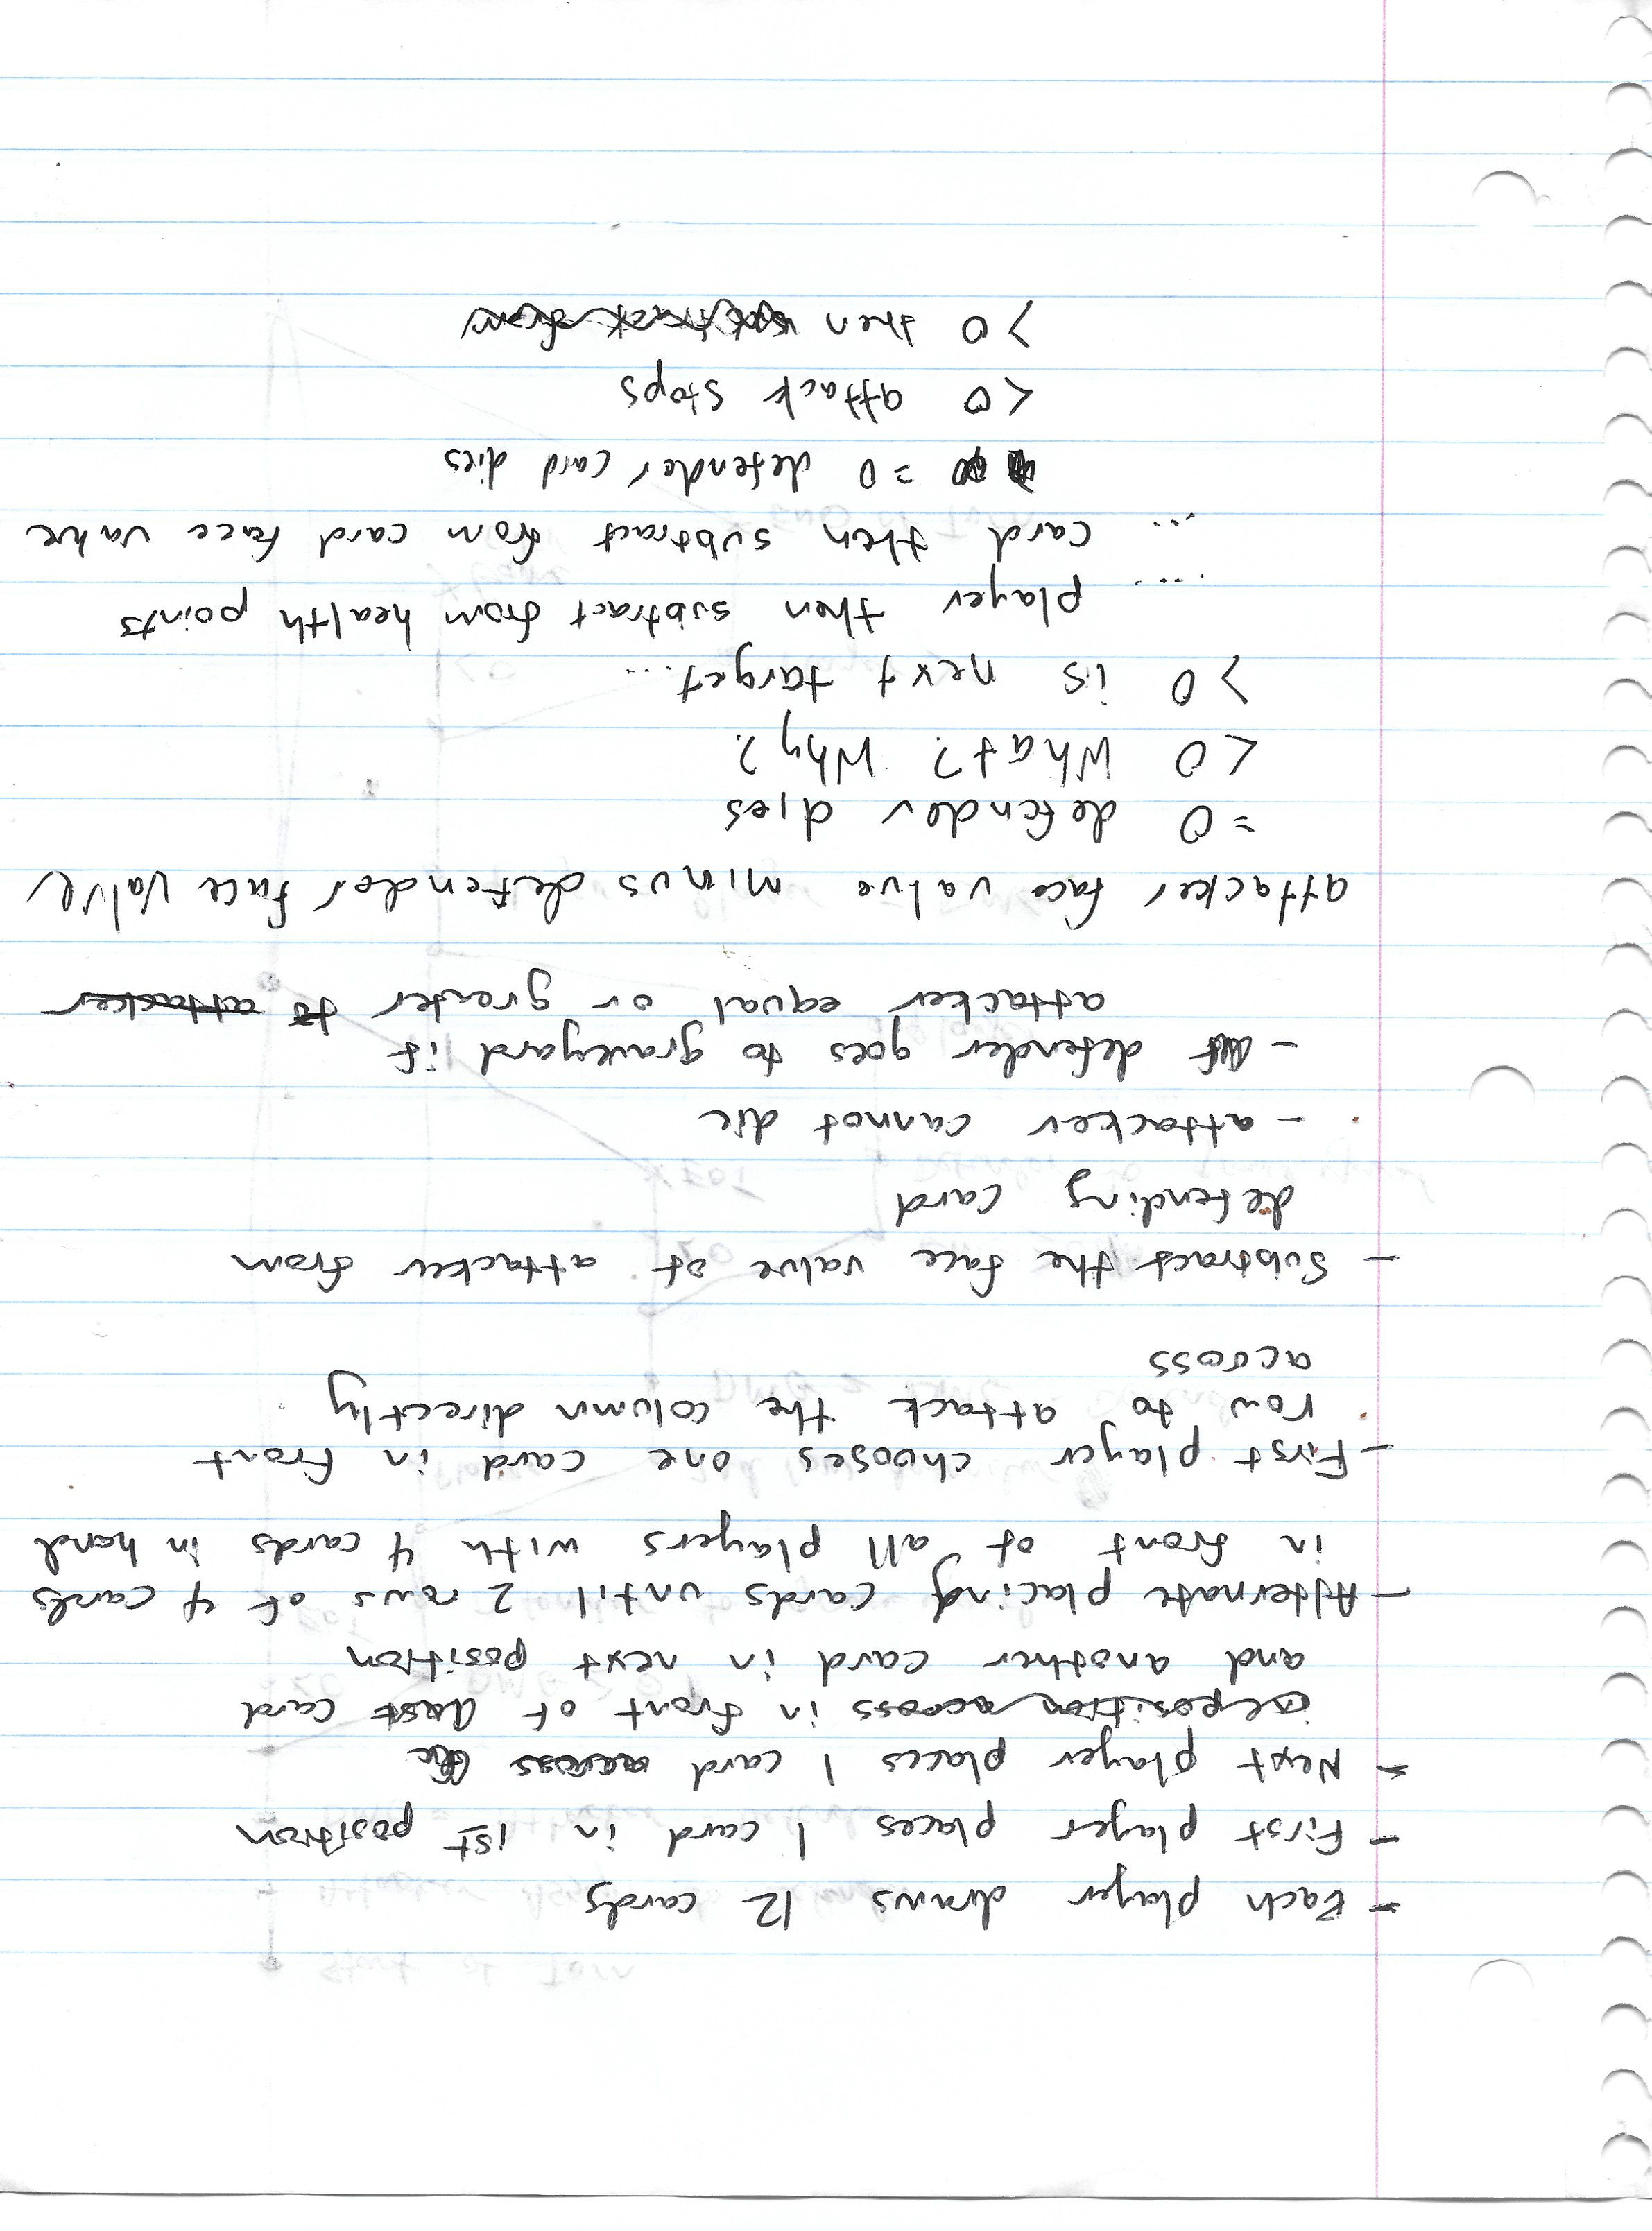 - Each player draws 12 cards
- First player places 1 card in 1st position
- Next player places 1 card across the
position across in front of last card
and another card in next position
- Alternate placing cards until 2 rows of 4 cards
in front of all players with 4 cards in hand
- First player chooses one card in front
row to attack the column directly
across
- Subtract the face value of attacker from
defending card
- attacker cannot die
- defender goes to graveyard if
attacker equal or greater to attacker
attacker face value minus defender face value
= 0 defender dies
< 0 What? Why?
> 0 is next target...
.... player then subtract from health points
... card then subtract from card face value
= 0 defender card dies
< 0 attack stops
> 0 then subtract from
Start of Turn